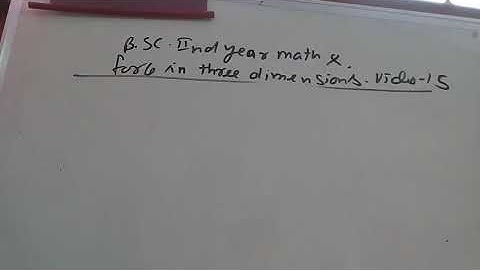 B.SC. IInd year math &.
in three dimensions. Video-15